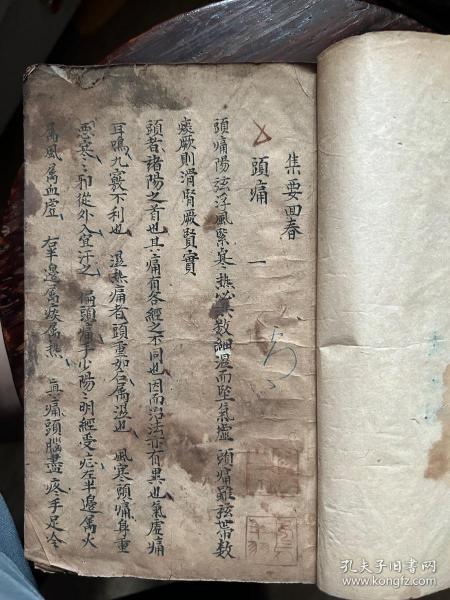 集要回春
頭痛 一
頭痛陽弦浮風緊寒熱必洪數細濕而坠氣虛 頭痛雖弦帶數
痰厥則滑腎厥賢實
頭者諸陽之首也其痛有各經之不同也因而治法亦有異也氣虛痛
耳鳴九竅不利也 濕熱痛者頭重如石属湿也 風寒頭痛身重
悪寒之邪從外入宜汗之 偏頭痛手少陽之明經受症左半邊属火
属風属血虛 右半邊属痰属熱 真痛頭腦盡疼手足令
孔夫子旧书网